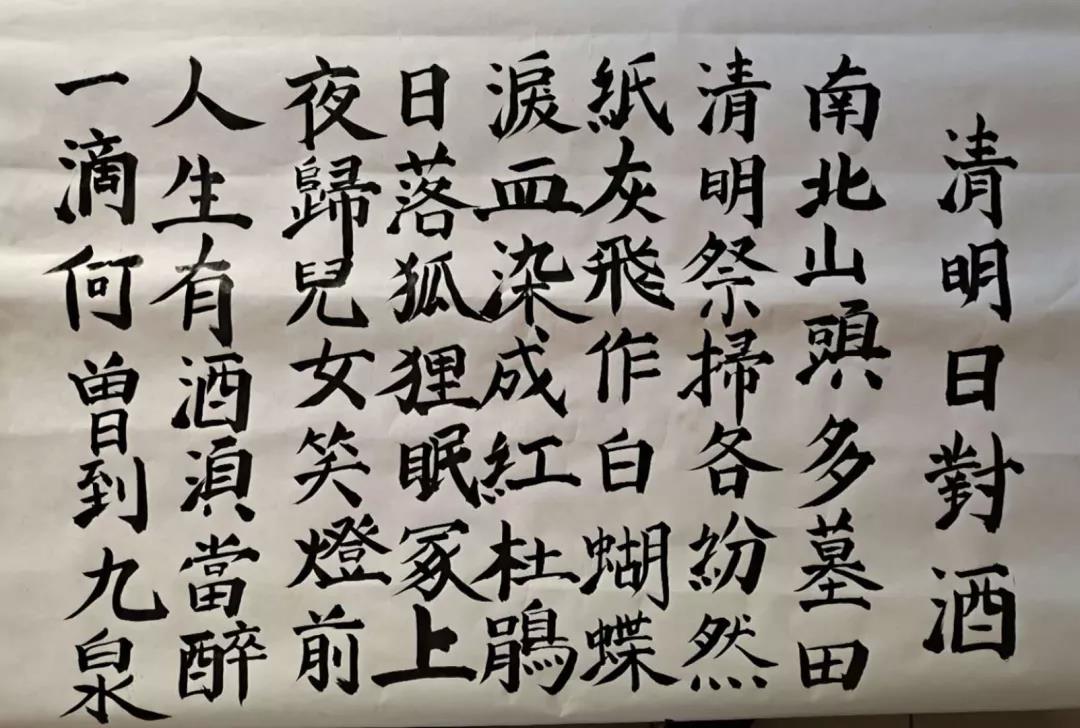 清明日對酒
南北山頭多墓田
清明祭掃各紛然
紙灰飛作白蝴蝶
淚血染成紅杜鵑
日落狐狸眠冢上
夜歸兒女笑燈前
人生有酒須當醉
一滴何曾到九泉